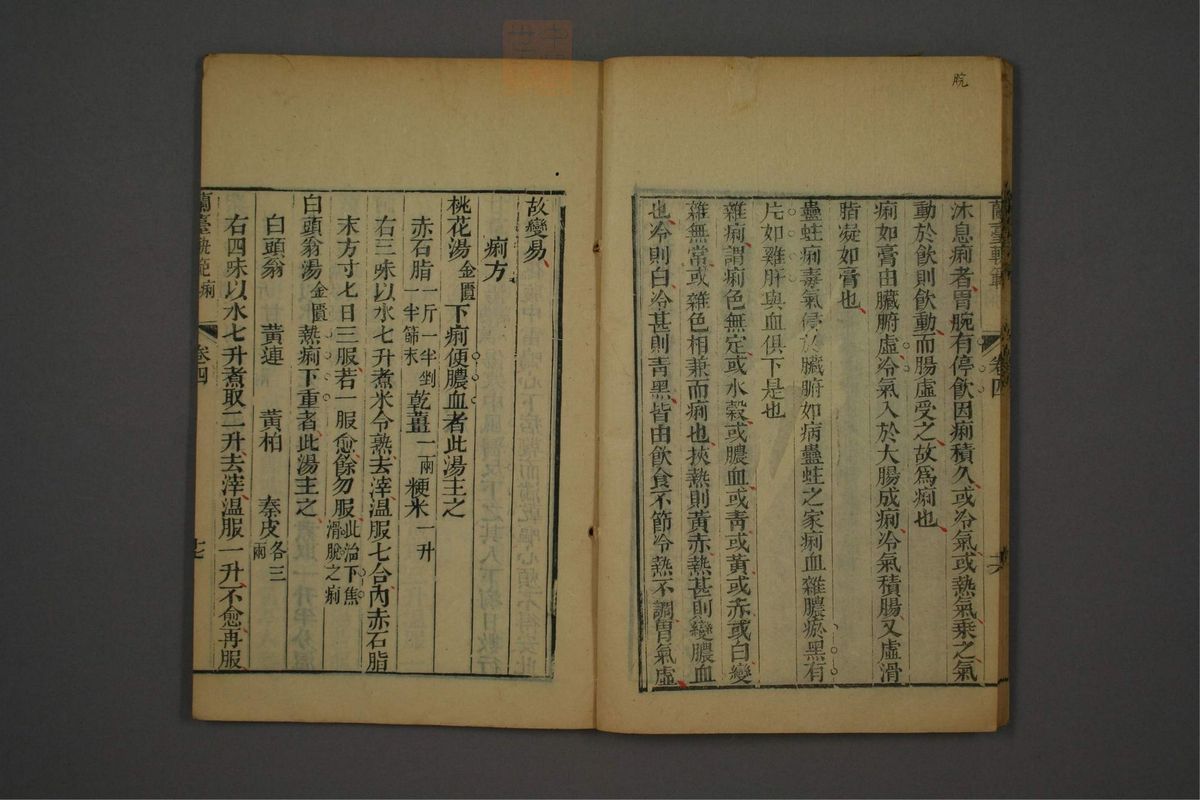 脘
蘭臺軌範
卷四
十六
沐息痢者胃脘有停飲因痢積久或冷氣或熱氣乘之氣
動於飲則飲動而腸虛受之故爲痢也
痢如膏由臟腑虛冷氣入於大腸成痢冷氣積腸又虛滑
脂凝如膏也
蠱蛀痢毒氣侵於臟腑如病蠱蛀之家痢血雜膿瘀黑有
片如雞肝與血俱下是也
雜痢謂痢色無定或水穀或膿血或靑或黃或赤或白變
雜無常或雜色相兼而痢也挾熱則黃赤熱甚則變膿血
也冷則白冷甚則靑黑皆由飲食不節冷熱不調胃氣虛
故變易
痢方
桃花湯金匱下痢便膿血者此湯主之
赤石脂一斤一半剉一半篩末乾薑一兩粳米一升
右三味以水七升煮米令熟去滓溫服七合內赤石脂
末方寸匕日三服若一服愈餘勿服此治下焦滑脫之痢
白頭翁湯金匱熱痢下重者此湯主之
白頭翁 黃連 黃柏 秦皮各三兩
右四味以水七升煮取二升去滓溫服一升不愈再服
蘭臺軌範 痢
卷四
十七